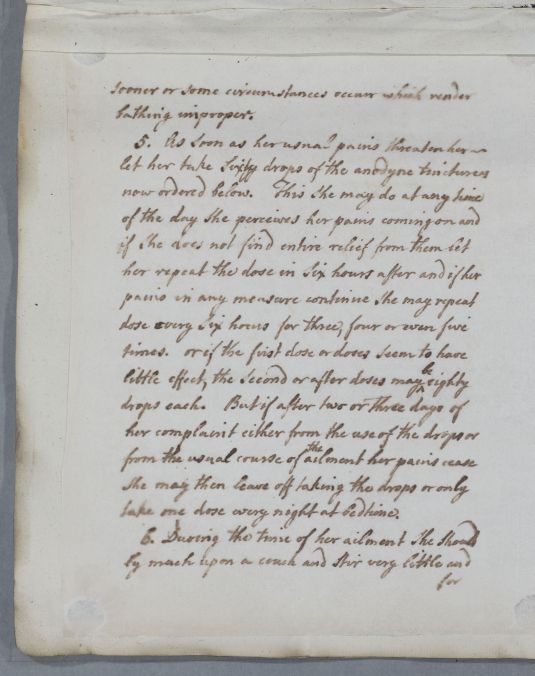 sooner or some circumstances occur which render
bathing improper.
5. As soon as her usual pains threaten her
let her take Sixty drops of the anodyne tinctures
now ordered below. This She may do at any time
of the day She perceives her pains coming on and
if She does not find entire relief from them let
her repeat the dose in Six hours after and if her
pains in any measure continue She may repeat
dose every Six hours for three, four or even five
times. or if the first dose or doses Seem to have
little effect, the Second or after doses may be eighty
drops each. But if after two or three days of
her complaint either from the use of the drops or
from the usual course of the ailment her pains cease
She may then leave off taking the drops or only
take one dose every night at bedtime.
6. During the time of her ailment She Should
ly much upon a couch and Stir very little and
for